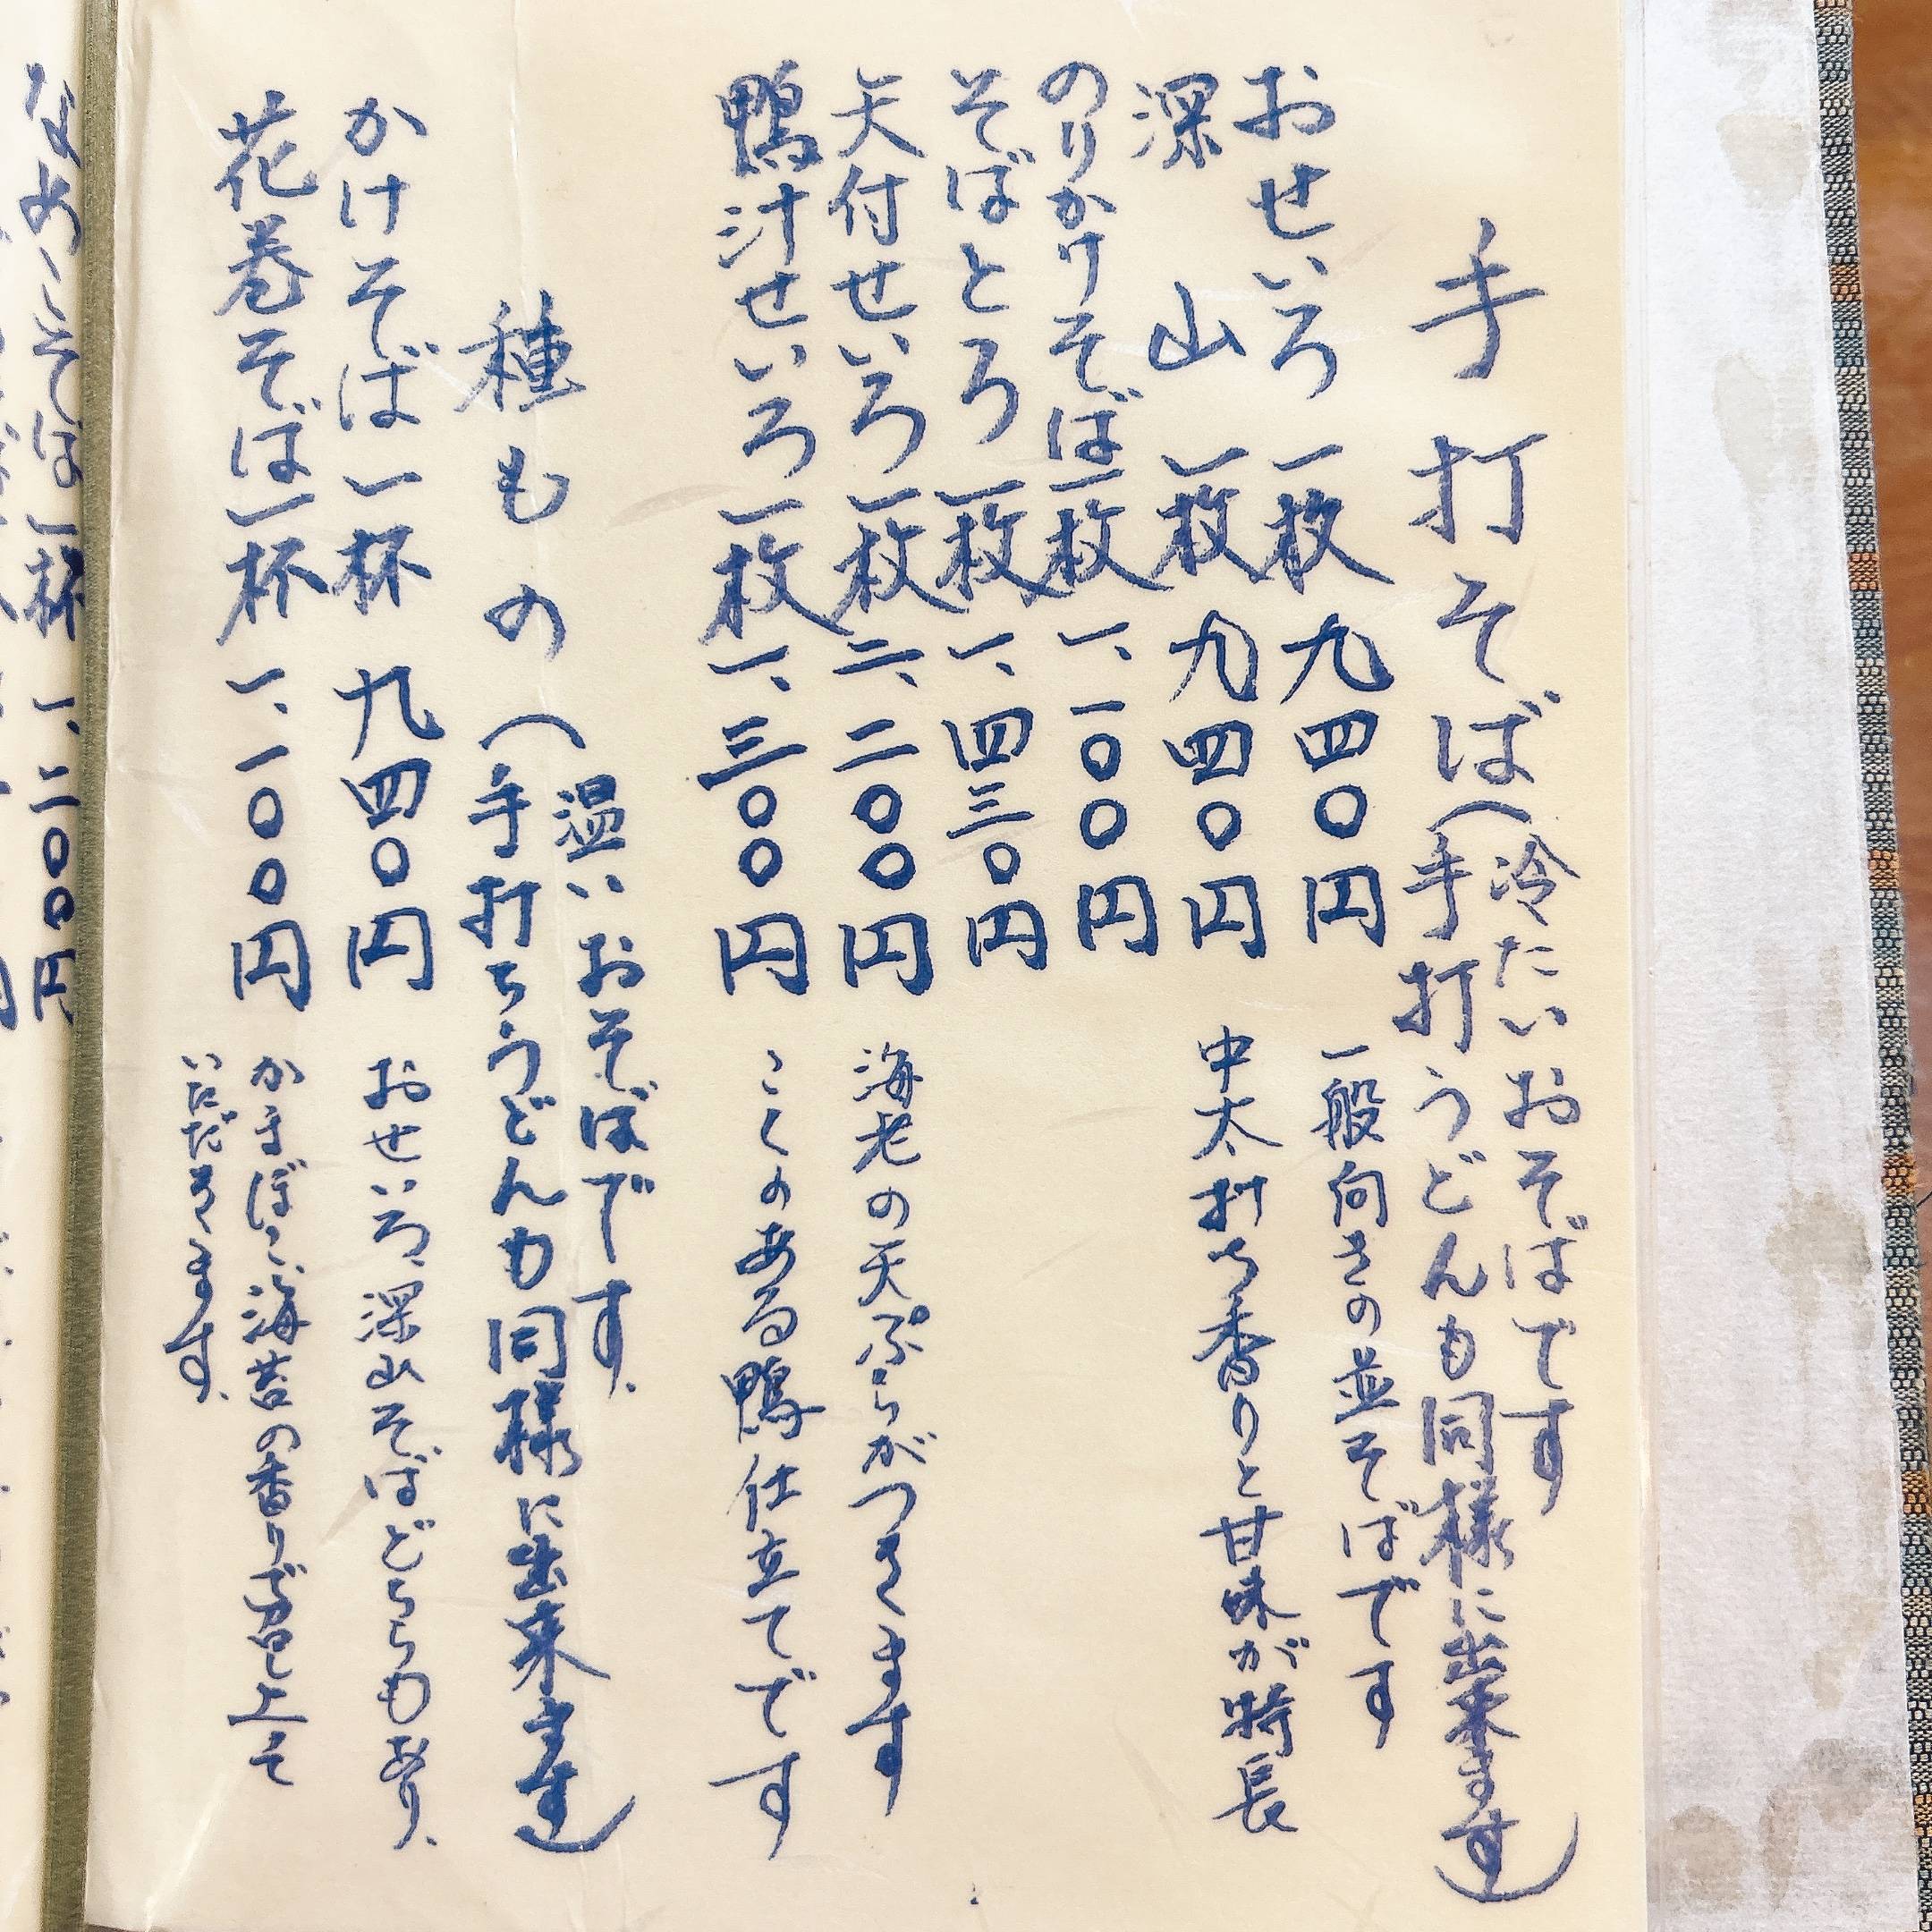 手打そば(冷たいおそばです
手打うどんも同様に出来ます)
おせいろ一枚九四〇円 一般向きの並そばです
深山一枚九四〇円 中太打ち香りと甘味が特長
のりかけそば一枚一、一〇〇円
そばとろ一枚一、四三〇円
天付せいろ一枚二、二〇〇円 海老の天ぷらがつきます
鴨汁せいろ一枚一、三〇〇円 こくのある鴨仕立てです
種もの(温いおそばです.
手打ちうどんも同様に出来ます)
かけそば一杯九四〇円 おせいろ、深山そばどちらもあり、
花巻そば一杯一、一〇〇円 かまぼこ、海苔の香りで召し上って
いただきます.
なめこそば一杯一、二〇〇円